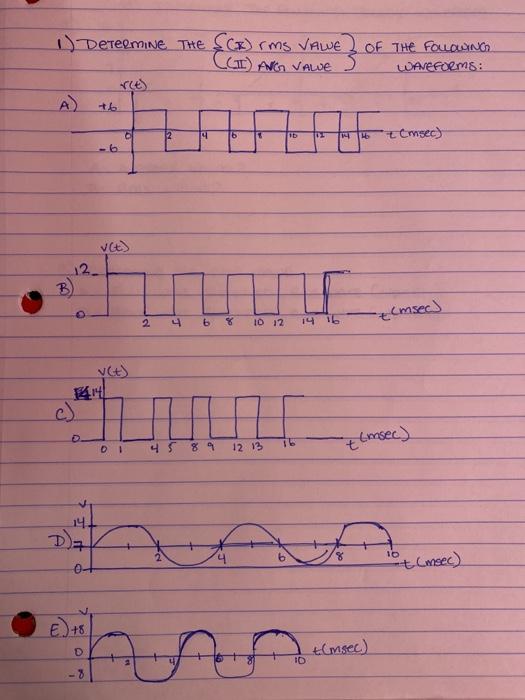 1) DETERMINE THE {(I) rms VALUE} OF THE FOLLOWING
{(II) AVG VALUE} WAVEFORMS:
v(t)
A) +6
0 2 4 6 8 10 12 14 16 t (msec)
-6
v(t)
12
B)
0
2 4 6 8 10 12 14 16 t (msec)
v(t)
14
C)
0
0 1 4 5 8 9 12 13 16 t (msec)
v
14
D) 7
2 4 6 8 10
0 t (msec)
v
E) +8
0 2 4 6 8 10 t (msec)
-8